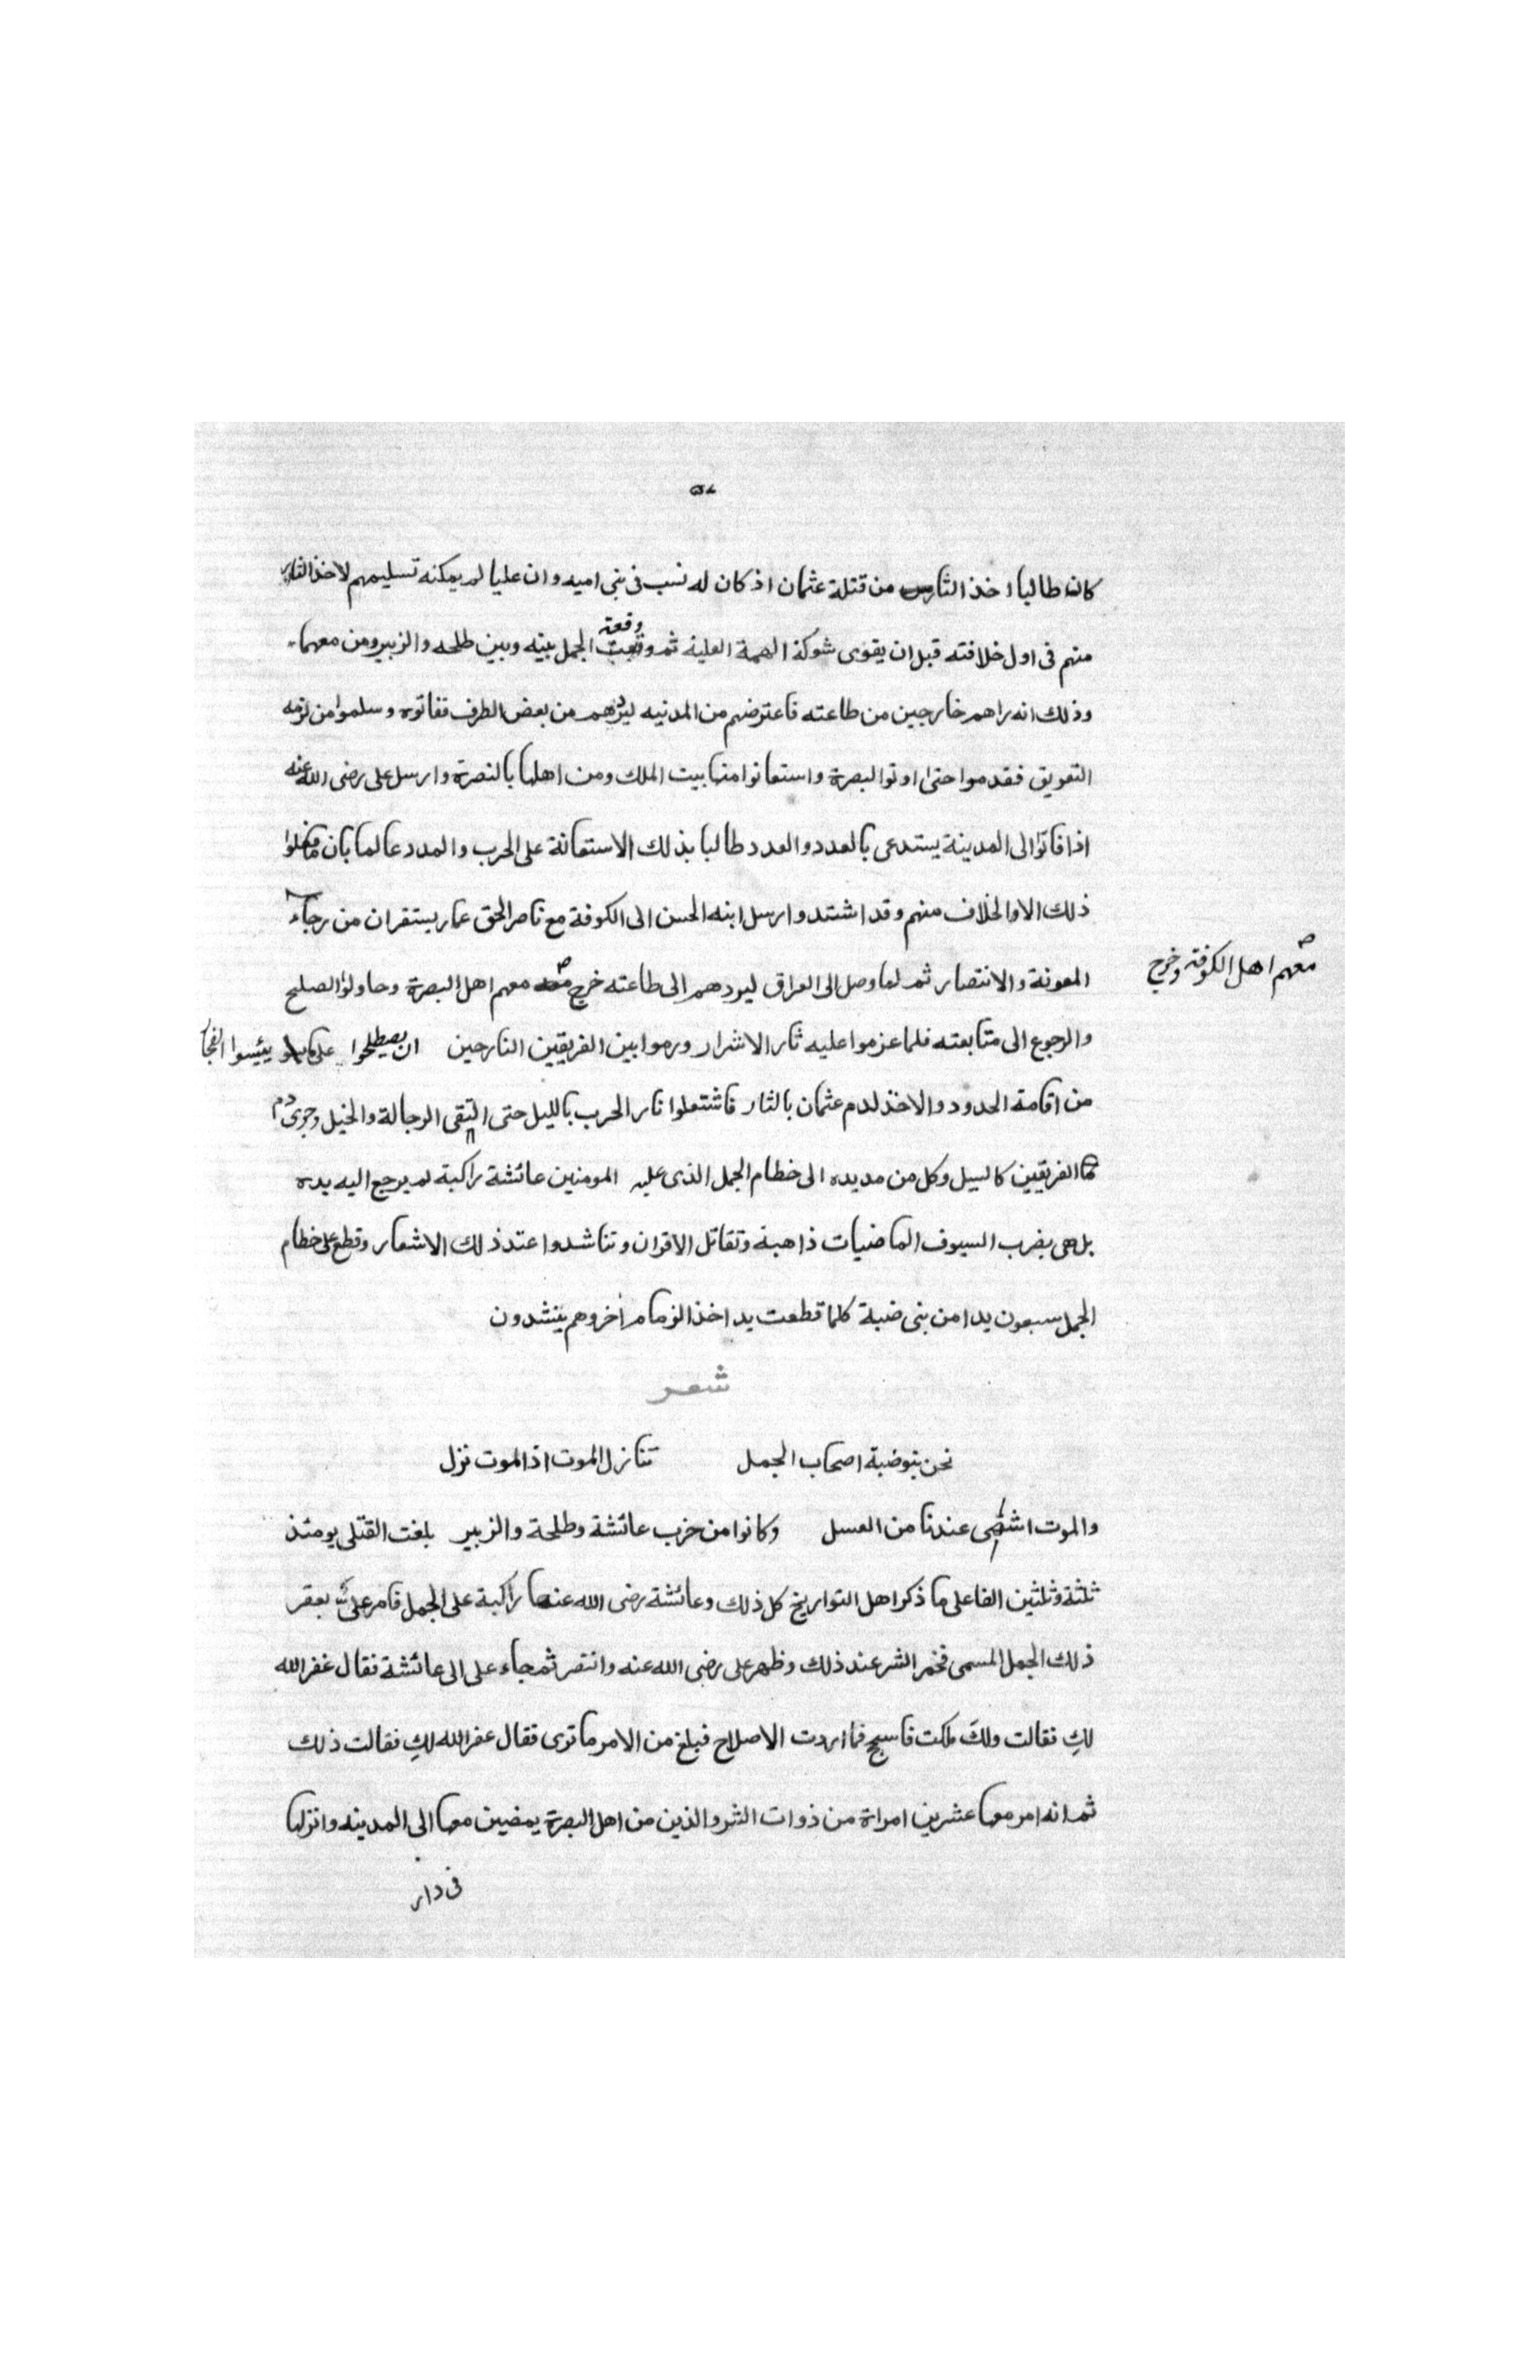 كان طالبا اخذ الثار من قتلة عثمان اذ كان له نسب فى بنى اميه وان عليا لم يمكنه تسليمهم لاخذ الثار
منهم فى اول خلافته قبل ان يقوى شوكة الهمة العلية ثم وقعت وقعة الجمل بينه وبين طلحه والزبير ومن معهما
وذلك انه راهم خارجين من طاعته فاعترضهم من المدنيه ليردهم من بعض الطرف ففاتوه وسلموا من لزمه
التعويق فقدموا حتى اوتوا البصرة واستعانوا منها ببيت الملك ومن اهلها بالنصرة وارسل على رضى الله عنه
اذا فاتوا الى المدينة يستدعى بالعدد والعدد طالبا بذلك الاستعانة على الحرب والمدد عالما بان ما فعلوا
ذلك الا والخلاف منهم وقد اشتد وارسل ابنه الحسن الى الكوفة مع ناصر الحق عمار يستفران من رجاء
المعونة والانتصار ثم لما وصل الى العراق ليردهم الى طاعته خرج معهم اهل البصرة وحاولوا الصلح
معهم اهل الكوفة وخرج
والرجوع الى متابعته فلما عزموا عليه ثار الاشرار ورموا بين الفريقين النارحين ان يصطلحوا على يئسوا الفجا
من اقامة الحدود والاخذ لدم عثمان بالثار فاشتعلوا نار الحرب بالليل حتى التقى الرجالة والخيل وجرى دم
الفريقين كالسيل وكل من مد يده الى خطام الجمل الذى عليه المومنين عائشة راكبة لم يرجع اليه يده
بل هى بضرب السيوف الماضيات ذاهبة وتقاتل الاقران وتناشدوا عند ذلك الاشعار وقطع على خطام
الجمل سبعون يدا من بنى ضبة كلما قطعت يد اخذ الزمام اخر وهم ينشدون
شعر
نحن بنو ضبة اصحاب الجمل تنازل الموت اذا الموت نزل
والموت اشهى عندنا من العسل وكانوا من حزب عائشة وطلحة والزبير بلغت القتلى يومئذ
ثلثة وثلثين الفا على ما ذكر اهل التواريخ كل ذلك وعائشة رضى الله عنها راكبة على الجمل فامر على بعقر
ذلك الجمل المسمى فخمر الشر عند ذلك وظهر على رضى الله عنه وانتصر ثم جاء على الى عائشة فقال غفر الله
لكِ فقالت ولكَ ملكت فاسجح فما اردت الا الاصلاح فبلغ من الامر ما ترى فقال غفر الله لكِ فقالت ذلك
ثم انه امر معها عشرين امراة من ذوات الشر والذين من اهل البصرة يمضين معها الى المدينه وانزلها
فى دار